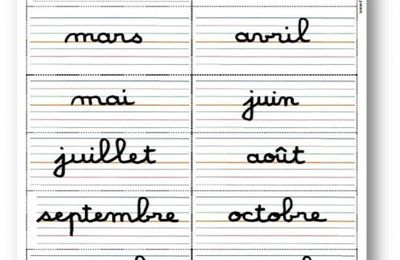 mars avril
mai juin
juillet août
septembre octobre